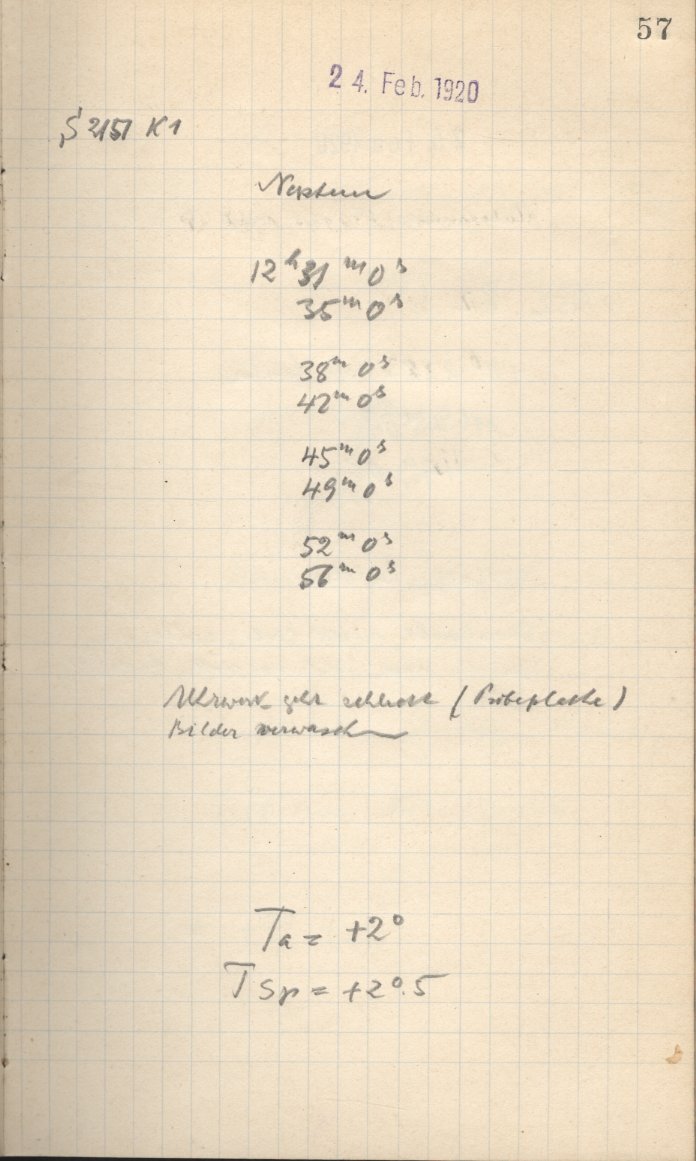 57
24. Feb. 1920
S 2151 K1
Neptun
12ʰ 31ᵐ 0ˢ
35ᵐ 0ˢ
38ᵐ 0ˢ
42ᵐ 0ˢ
45ᵐ 0ˢ
49ᵐ 0ˢ
52ᵐ 0ˢ
56ᵐ 0ˢ
Uhrwerk geht schlecht (Probeplatte)
Bilder verwaschen
Ta = +2°
TSp = +2°.5